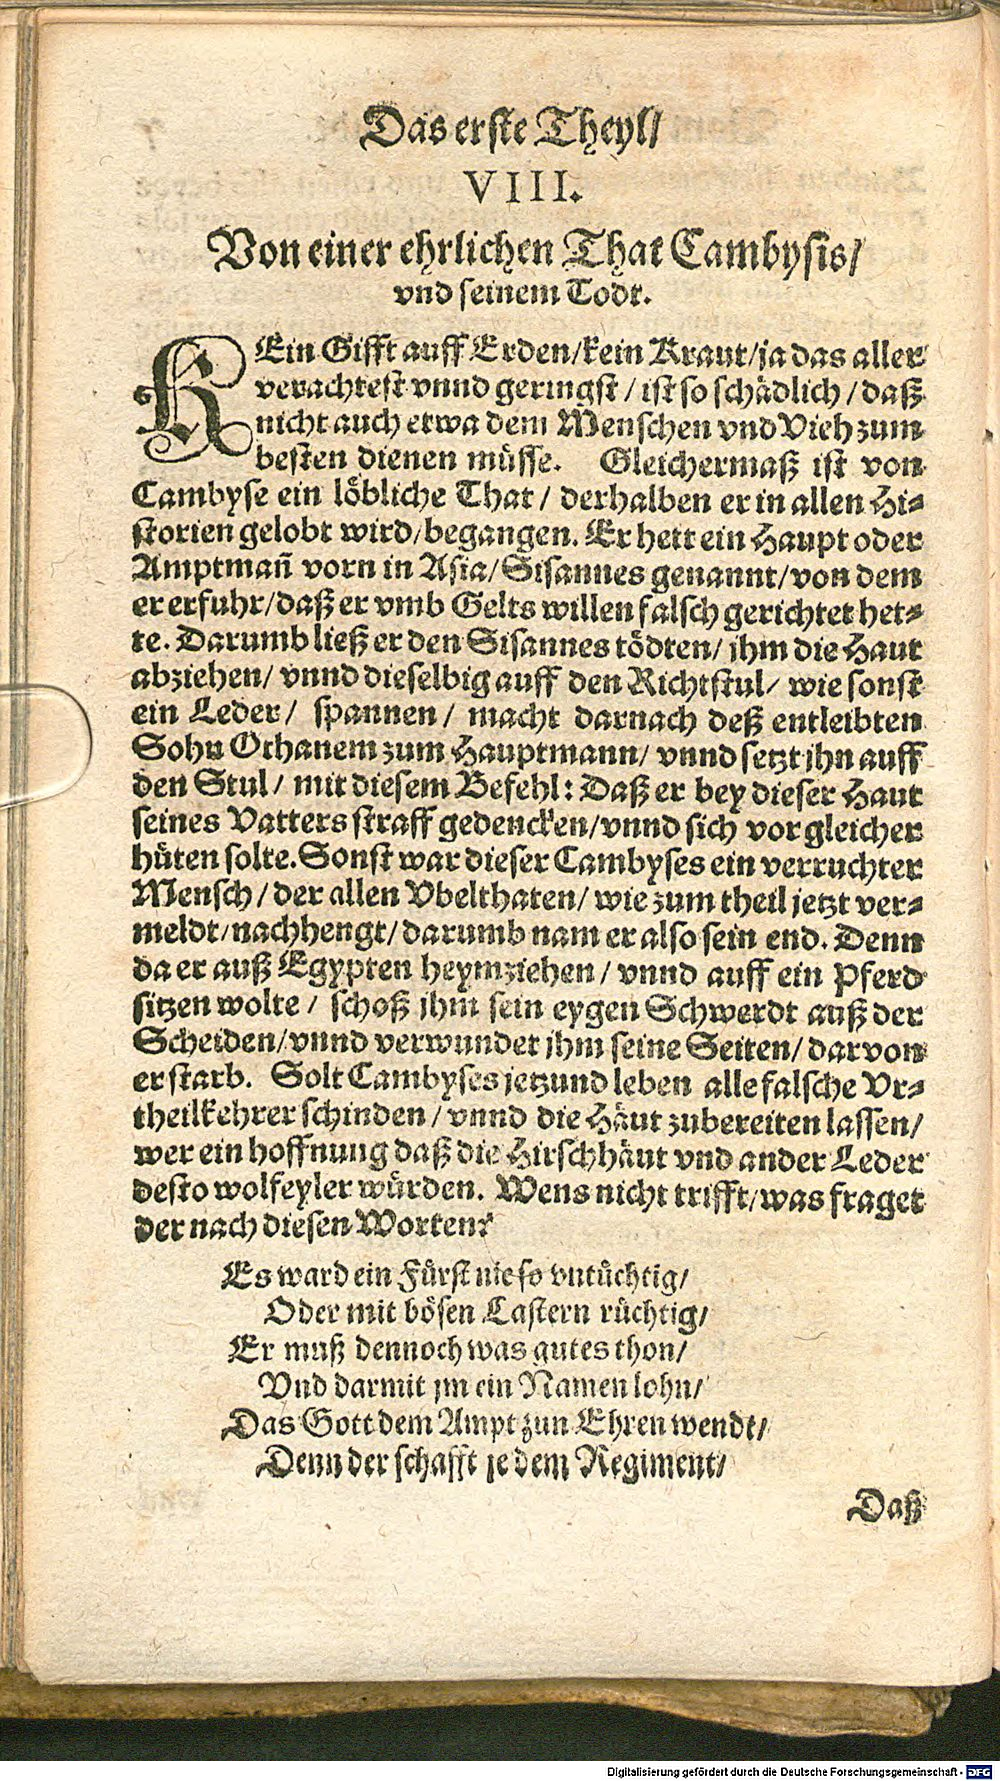 Das erste Theyl/
VIII.
Von einer ehrlichen That Cambysis/
vnd seinem Todt.
KEin Gifft auff Erden/kein Kraut/ja das aller
verachtest vnnd geringst / ist so schädlich / daß
nicht auch etwa dem Menschen vnd Vieh zum
besten dienen müsse. Gleichermaß ist von
Cambyse ein löbliche That / derhalben er in allen Hi-
storien gelobt wird/begangen. Er hett ein Haupt oder
Amptmañ vorn in Asia/Sisannes genannt/von dem
er erfuhr/daß er vmb Gelts willen falsch gerichtet het-
te. Darumb ließ er den Sisannes tödten/ jhm die Haut
abziehen/ vnnd dieselbig auff den Richtstul/ wie sonst
ein Leder/ spannen/ macht darnach deß entleibten
Sohn Othanem zum Hauptmann/ vnnd setzt jhn auff
den Stul/ mit diesem Befehl: Daß er bey dieser Haut
seines Vatters straff gedencken/vnnd sich vor gleicher
hüten solte. Sonst war dieser Cambyses ein verruchter
Mensch/ der allen Vbelthaten/ wie zum theil jetzt ver-
meldt/nachhengt/darumb nam er also sein end. Denn
da er auß Egypten heymziehen/ vnnd auff ein Pferd
sitzen wolte/ schoß jhm sein eygen Schwerdt auß der
Scheiden/vnnd verwundet jhm seine Seiten/ darvon
er starb. Solt Cambyses jetzund leben alle falsche Vr-
theilkehrer schinden/ vnnd die Häut zubereiten lassen/
wer ein hoffnung daß die Hirschhäut vnd ander Leder
desto wolfeyler würden. Wens nicht trifft/was fraget
der nach diesen Worten?
Es ward ein Fürst nie so vntüchtig/
Oder mit bösen Lastern rüchtig/
Er muß dennoch was gutes thon/
Vnd darmit jm ein Namen lohn/
Das Gott dem Ampt zun Ehren wendt/
Denn der schafft je dem Regiment/
Daß
Digitalisierung gefördert durch die Deutsche Forschungsgemeinschaft - DFG